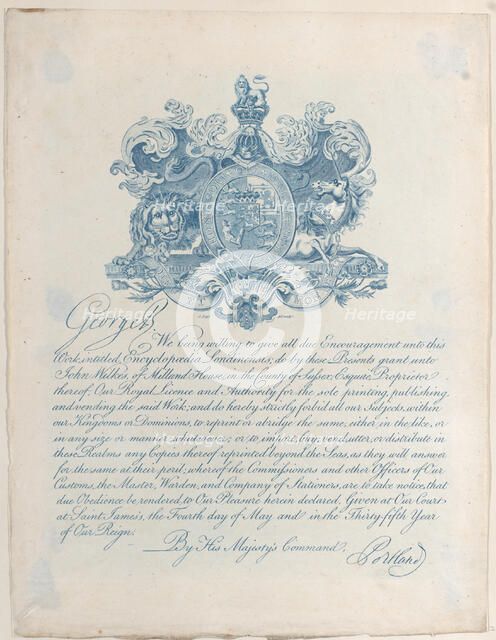 George R
We being willing to give all due Encouragement unto this
Work, intitled, Encyclopædia Londinensis, do by these Presents grant unto
John Wilkes, of Milland House, in the County of Sussex, Esquire, Proprietor
thereof, Our Royal Licence and Authority for the sole printing, publishing,
and vending the said Work; and do hereby strictly forbid all our Subjects, within
our Kingdoms or Dominions, to reprint or abridge the same, either in the like, or
in any size or manner whatsoever; or to import, buy, vend, utter, or distribute in
these Realms any Copies thereof reprinted beyond the Seas, as they will answer
for the same at their peril; whereof the Commissioners and other Officers of Our
Customs, the Master, Warden, and Company of Stationers, are to take notice, that
due Obedience be rendered to Our Pleasure herein declared. Given at Our Court
at Saint James's, the Fourth day of May and in the Thirty-fifth Year
of Our Reign.
By His Majesty's Command,
Portland
Heritage
Heritage
Heritage
Heritage
Heritage
Heritage